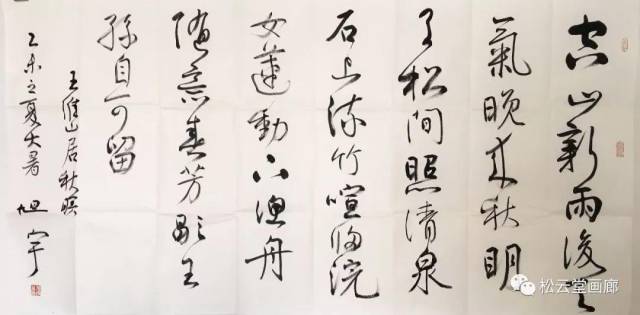 空山新雨後天
氣晚来秋明
月松間照清泉
石上流竹喧歸浣
女蓮動下漁舟
隨意春芳歇王
孫自可留
王維山居秋暝
乙未之夏大暑 旭宇
松云堂画廊